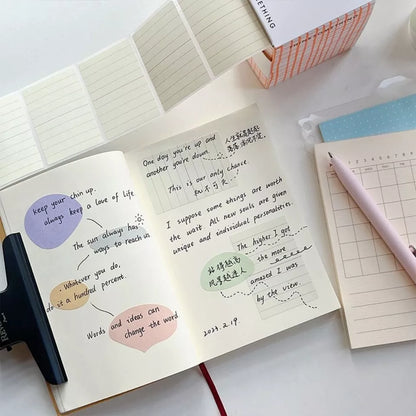 keep your chin up.
always keep a love of life.
The sun always has
ways to reach us
Whatever you do,
do it a hundred percent.
Words and ideas can
change the world
One day you're up and
another you're down.
This is our only chance.
I suppose some things are worth
the wait. All new souls are given
unique and individual personalities.
The higher I got
the more
amazed I was
by the view.
站得越高
风景越迷人
2023. 2. 19.
ETHING